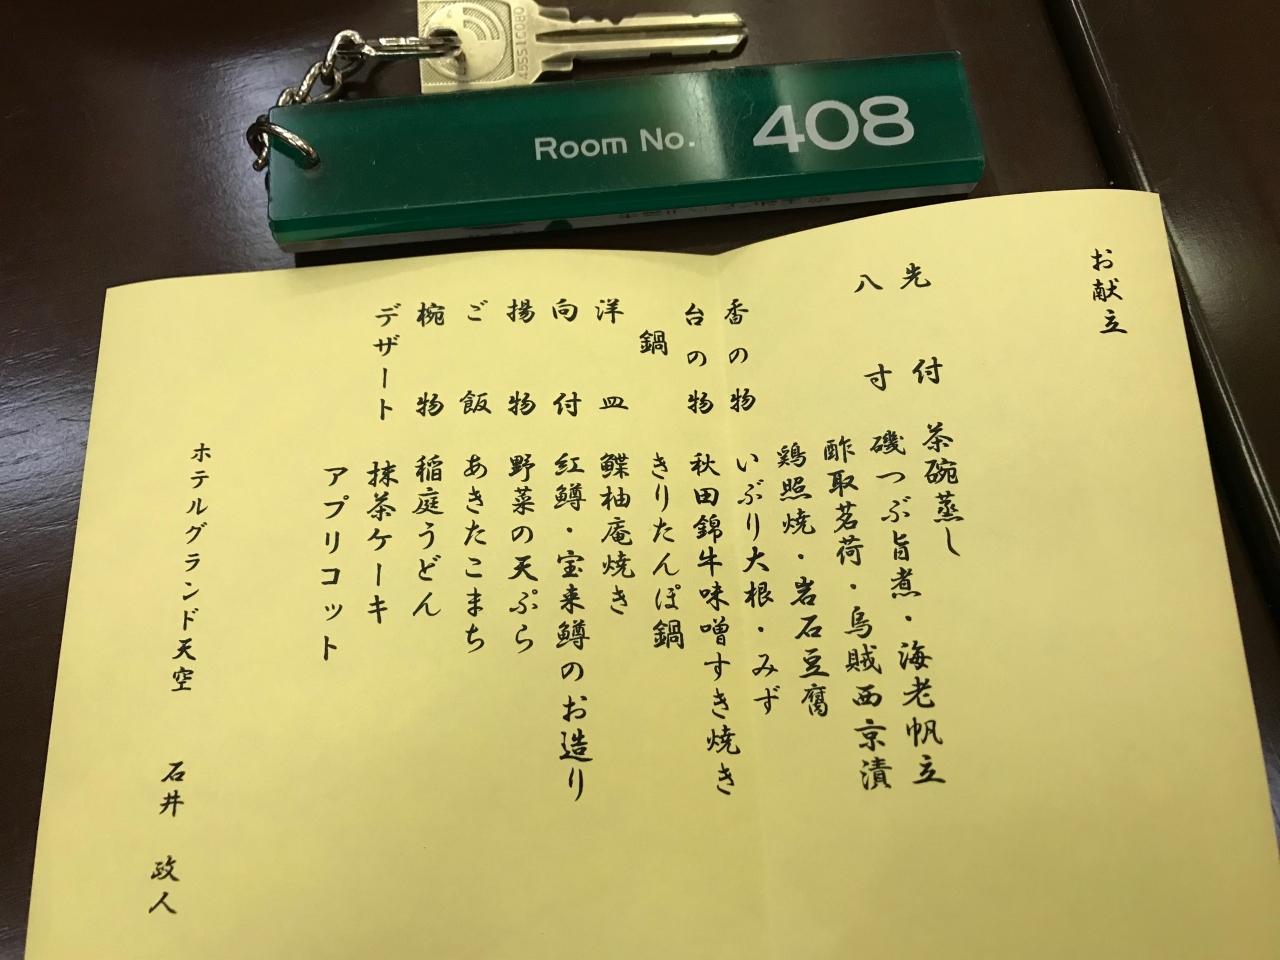 45S51C080
Room No. 408
お献立
先付 茶碗蒸し
八寸 磯つぶ旨煮・海老帆立
酢取茗荷・烏賊西京漬
鶏照焼・岩石豆腐
香の物 いぶり大根・みず
台の物 秋田錦牛味噌すき焼き
鍋 きりたんぽ鍋
洋皿 鰈柚庵焼き
向付 紅鱒・宝来鱒のお造り
揚物 野菜の天ぷら
ご飯 あきたこまち
椀物 稲庭うどん
デザート 抹茶ケーキ
アプリコット
ホテルグランド天空 石井 政人